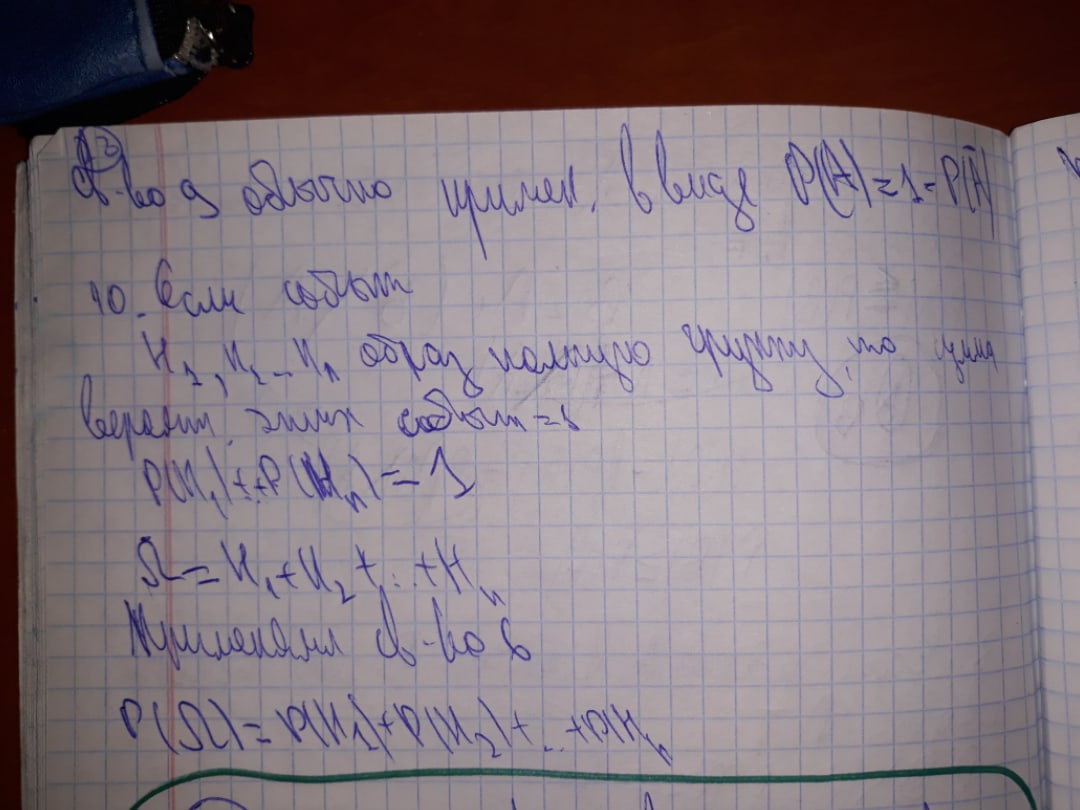 св-во 9 обычно примен. в виде P(A)=1-P(Ā)
10. Если событ
H₁, H₂...Hₙ образ полную группу, то сумма
вероятн. этих событ =1
P(H₁)+..+P(Hₙ)=1
Ω=H₁+H₂+...+Hₙ
Применяем св-во 6
P(Ω)=P(H₁)+P(H₂)+...+P(Hₙ